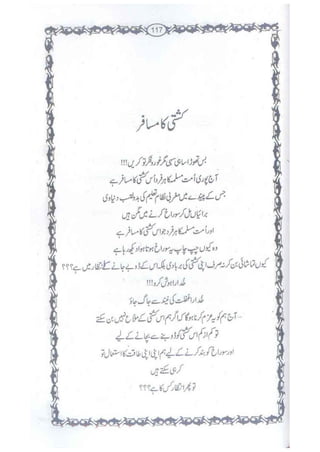 117
کشتی کا مسافر
بس تھوڑا سا ہی سہی مگر غور و فکر تو کریں!!!
آج پوری اُمت مسلمہ کا ہر فرد اُس کشتی کا مسافر ہے
جس کے پیندے میں مغربی نظامِ تعلیم کی بدولت دنیاوی
برائیاں مل کر سوراخ کرنے میں مگن ہیں
اور اُمت مسلمہ کا ہر فرد جو اس کشتی کا مسافر ہے
وہ کیوں چپ چاپ یہ سوراخ ہوتا ہوا دیکھ رہا ہے
کیوں تماشائی بن کر نہ صرف اپنی کشتی کی بربادی بلکہ اس کے ڈوبے جانے کے لئے انتظار میں ہے؟؟؟
خدارا ہوش کرو!!!
خدارا غفلت کی نیند سے جاگ جاؤ
آج ہم کو یہ عزم کرنا ہو گا کہ اگر ہم اس کشتی کے ملاح نہیں بن سکتے -
تو کم از کم اس کشتی کو ڈوبنے سے بچانے کے لیے
اور سوراخ کو بند کرنے کے لیے ہم اپنی اپنی طاقت کا استعمال تو
کر ہی سکتے ہیں
تو پھر انتظار کس کا ہے؟؟؟